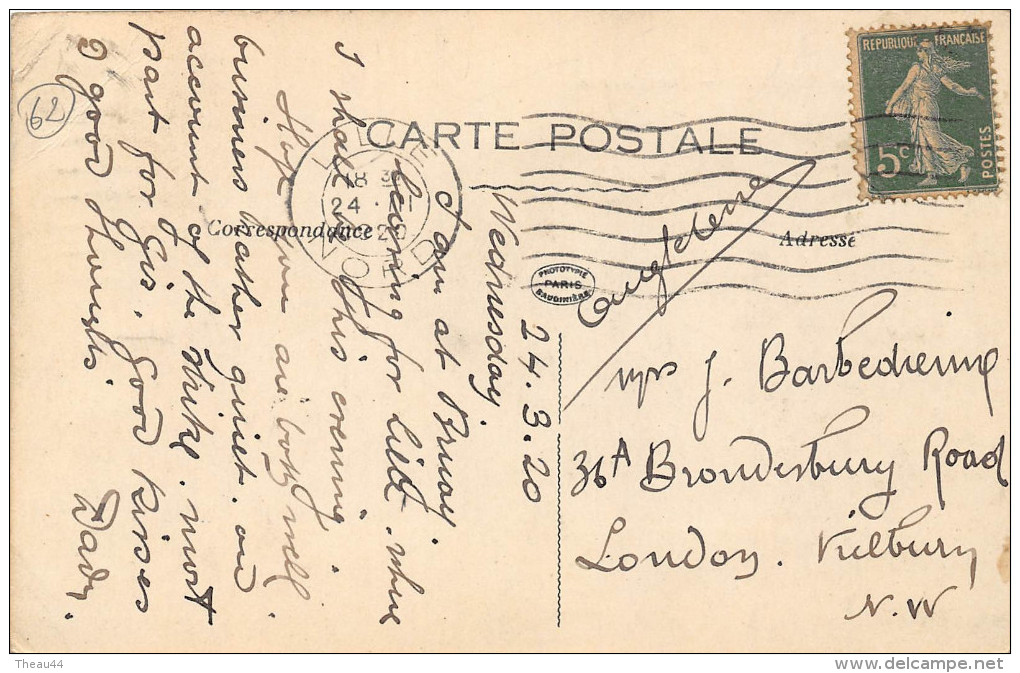 62
CARTE POSTALE
Correspondance
Adresse
REPUBLIQUE FRANCAISE
5c
POSTES
LILLE
18 3
24
20
NORD
PHOTOTYPIE
PARIS
BAUDINIÈRE
24.3.20
Wednesday.
I am at Bruay.
leaving for Lille where
I shall be this evening.
Hope you are both well
business rather quiet. on
account of the strike. must
part for Gis. Good Kisses
& good Thoughts. Dady.
Angleterre
Mrs J. Barbedienne
36A Brondesbury Road
London. Kilburn
N.W
Theau44
delcampe.net